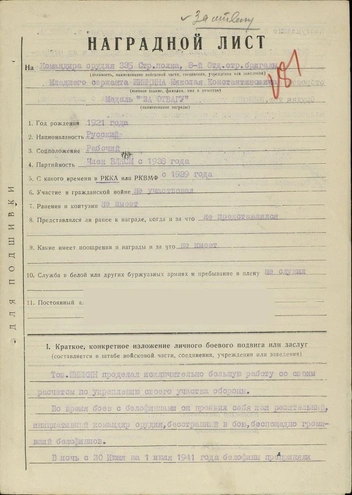 За отвагу
НАГРАДНОЙ ЛИСТ
На Командира орудия 335 Стр.полка, 8-й Отд.стр.бригады
Младшего сержанта Николая Константиновича
Медаль "ЗА ОТВАГУ"
1. Год рождения 1921 года
2. Национальность Русский
3. Соцположение Рабочий
4. Партийность Член ВЛКСМ с 1938 года
5. С какого времени в РККА или РКВМФ с 1939 года
6. Участие в гражданской войне не участвовал
7. Ранения и контузии не имеет
8. Представлялся ли ранее к награде, когда и за что не представлялся
9. Какие имеет поощрения и награды и за что не имеет
10. Служба в белой или других буржуазных армиях и пребывание в плену не служил
11. Постоянный
ДЛЯ ПОДШИВКИ
I. Краткое, конкретное изложение личного боевого подвига или заслуг
(составляется в штабе войсковой части, соединения, учреждения или заведения)
Тов. проделал исключительно большую работу со своим
расчетом по укреплению своего участка обороны.
Во время боев с белофинами он проявил себя как решительный,
инициативный командир орудия, бесстрашный в бою, беспощадно громивший
белофинов.
В ночь с 30 Июня на 1 июля 1941 года белофины